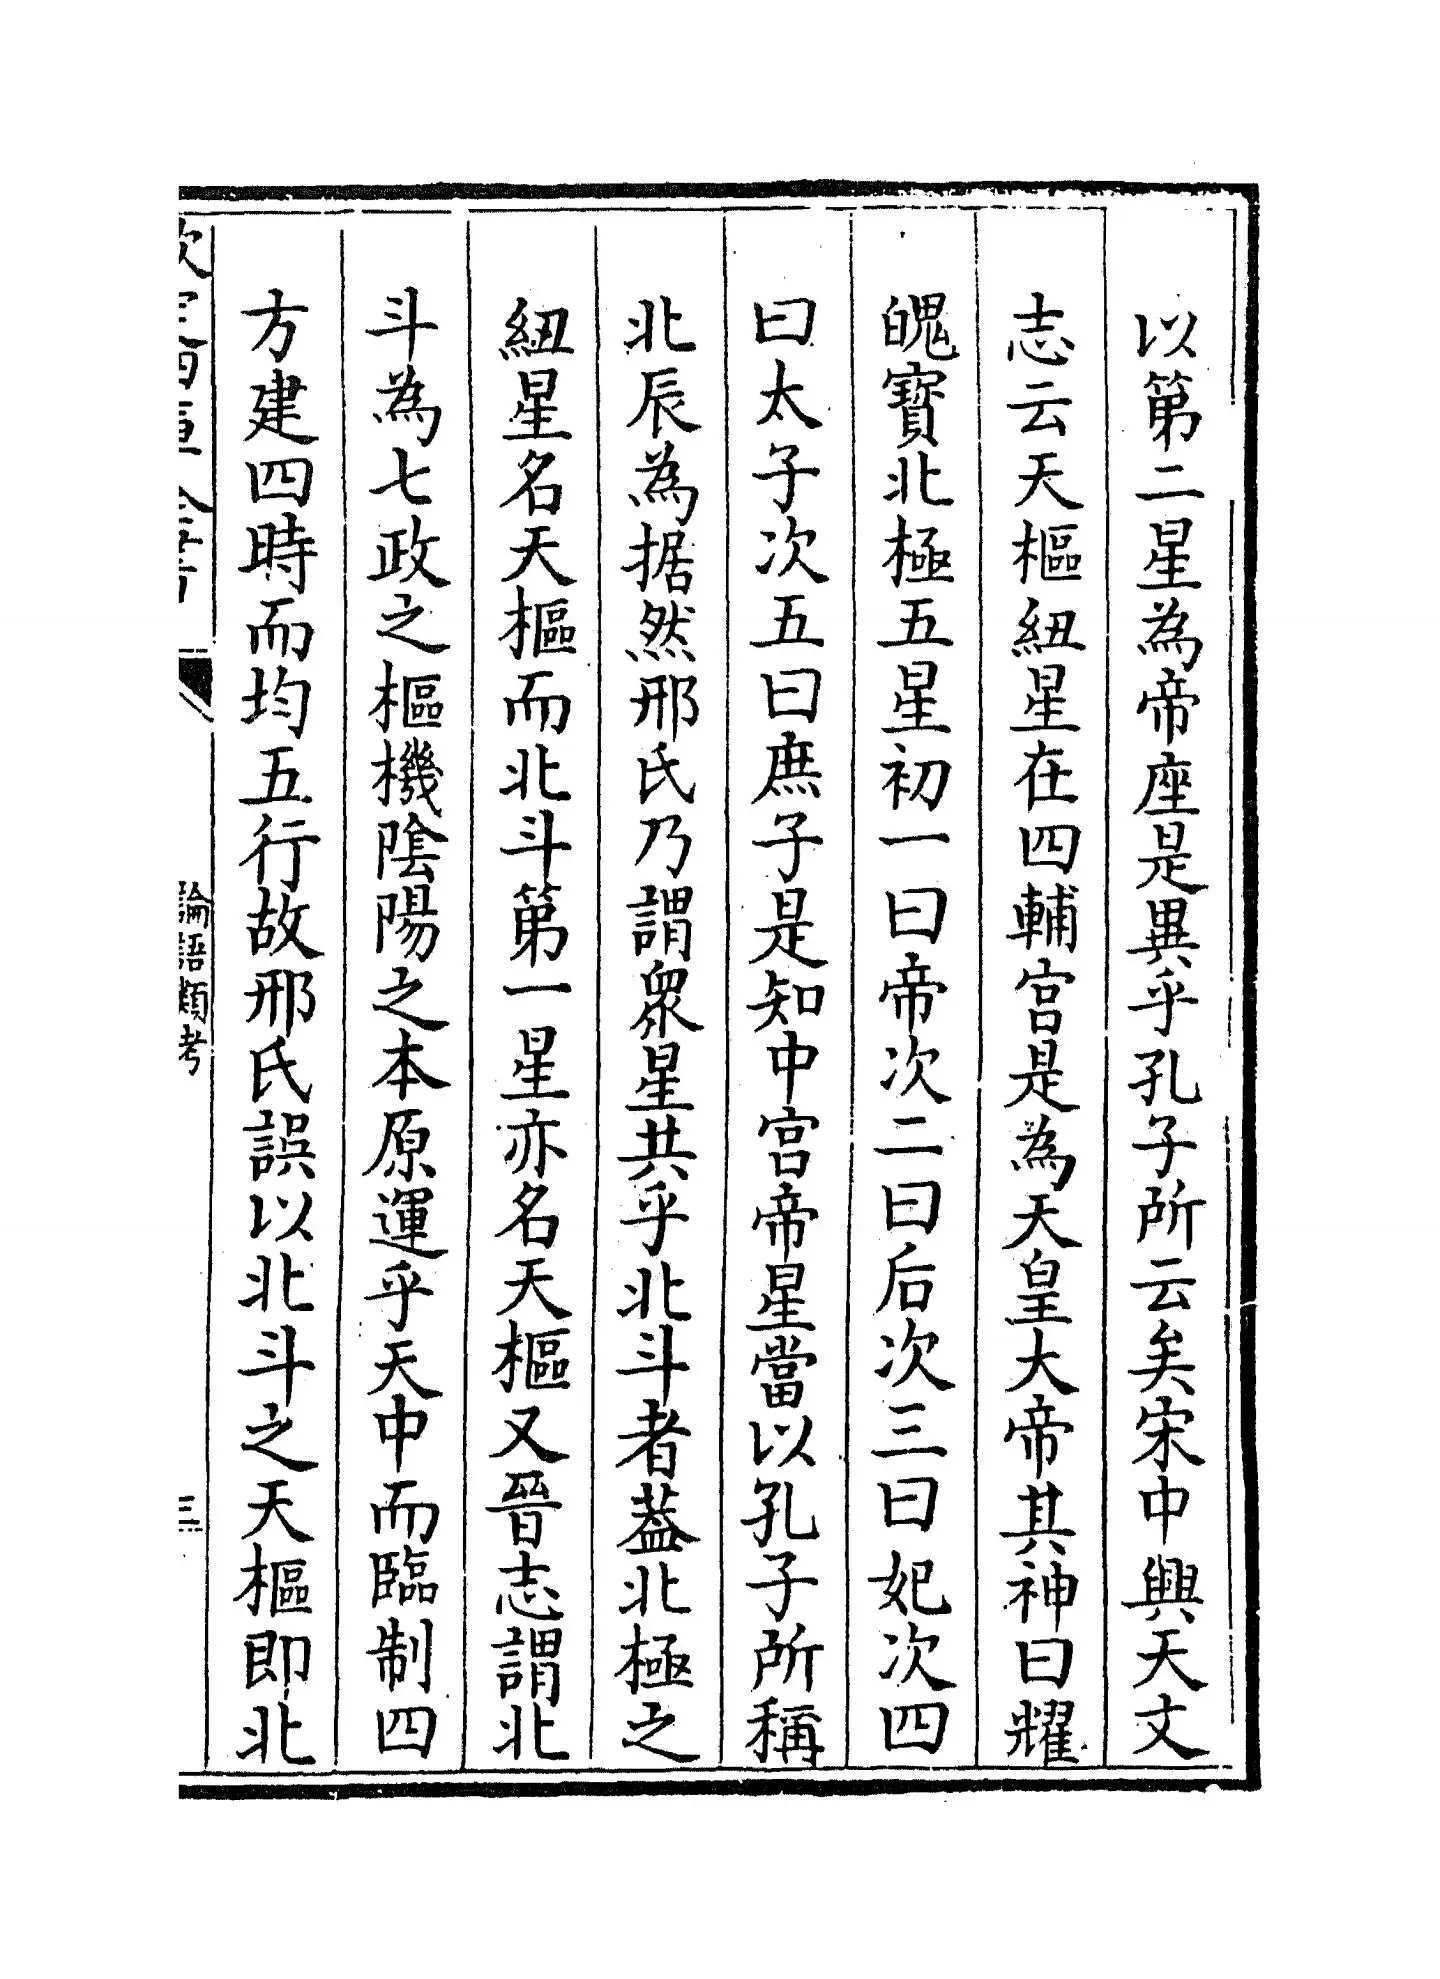 以第二星為帝座是異乎孔子所云矣宋中興天文
志云天樞紐星在四輔宫是為天皇大帝其神曰耀
魄寶北極五星初一曰帝次二曰后次三曰妃次四
曰太子次五曰庶子是知中宫帝星當以孔子所稱
北辰為据然邢氏乃謂衆星共乎北斗者葢北極之
紐星名天樞而北斗第一星亦名天樞又晉志謂北
斗為七政之樞機隂陽之本原運乎天中而臨制四
方建四時而均五行故邢氏誤以北斗之天樞即北
欽定四庫全書
論語類考
三